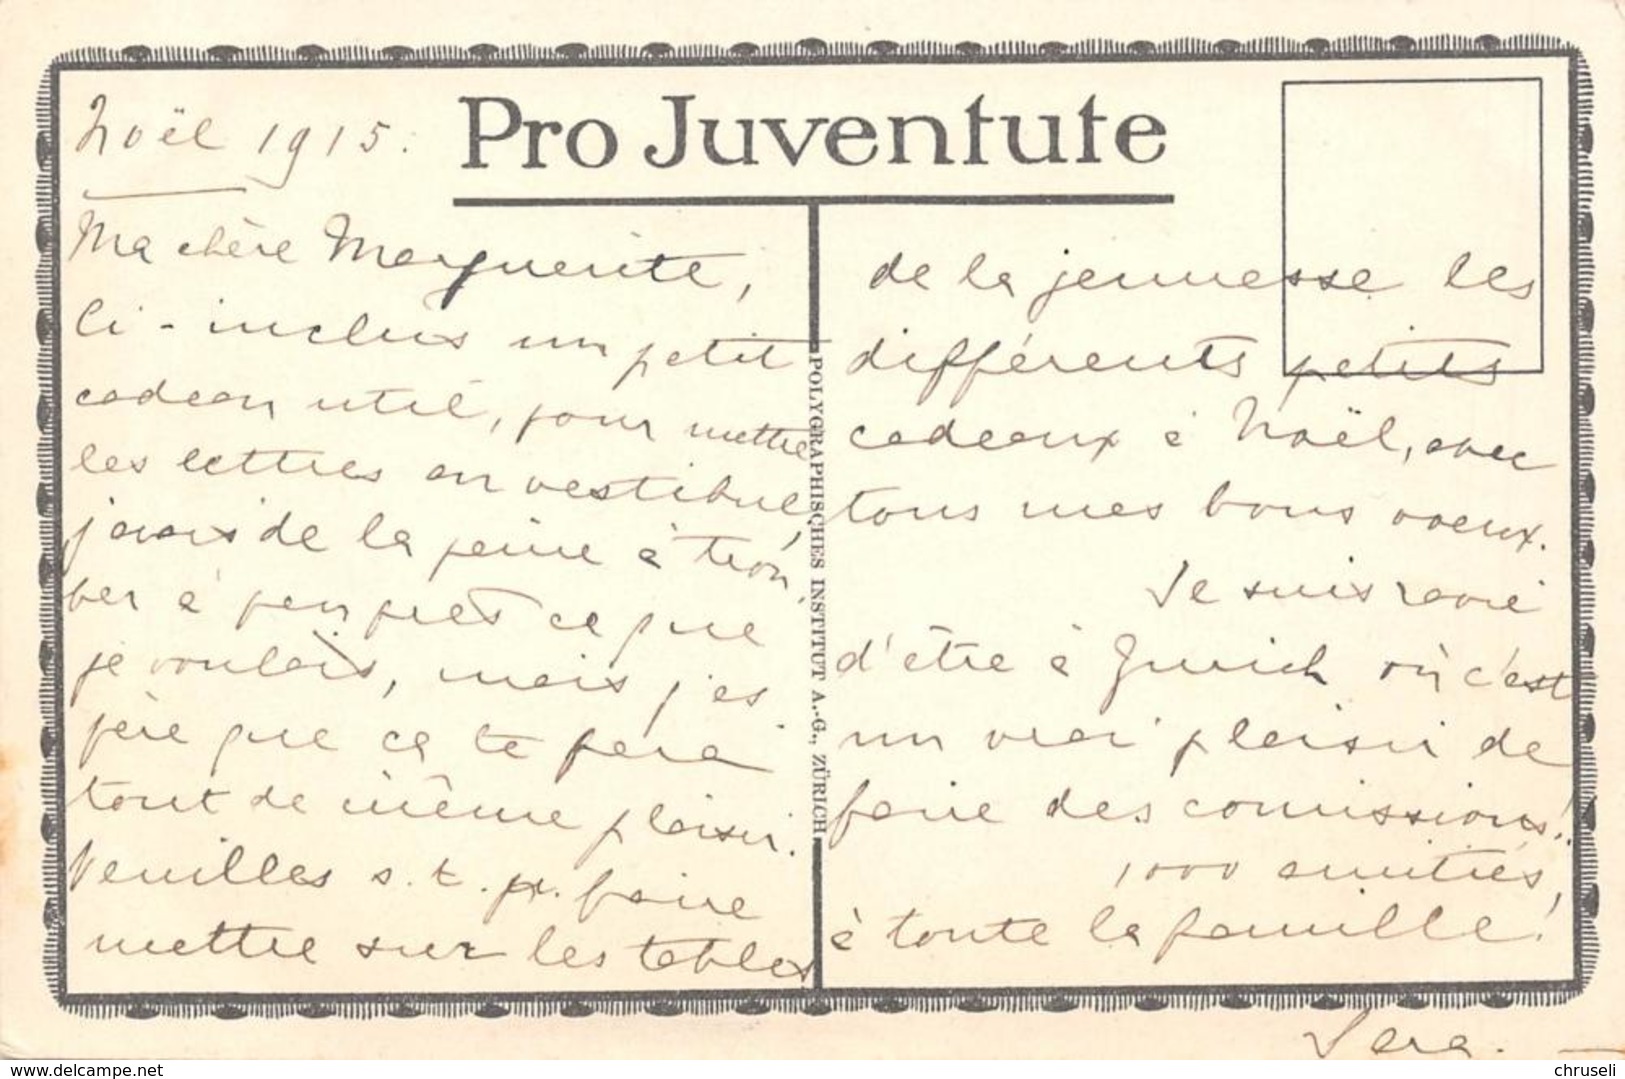 Noël 1915.
Pro Juventute
Ma chère Marguerite,
Ci-inclus un petit
cadeau utile, pour mettre
les lettres au vestibule,
j'avais de la peine à trou
ver à peu près ce que
je voulais, mais j'es
père que ça te fera
tout de même plaisir.
Veuilles s. t. pl. faire
mettre sur les tables
POLYGRAPHISCHES INSTITUT A.-G., ZÜRICH
de la jeunesse les
différents petits
cadeaux à Noël, avec
tous mes bons voeux.
Je suis ravie
d'être à Zurich où c'est
un vrai plaisir de
faire des comissions!
1000 amitiés,
à toute la famille!
Sara.
delcampe.net
chruseli